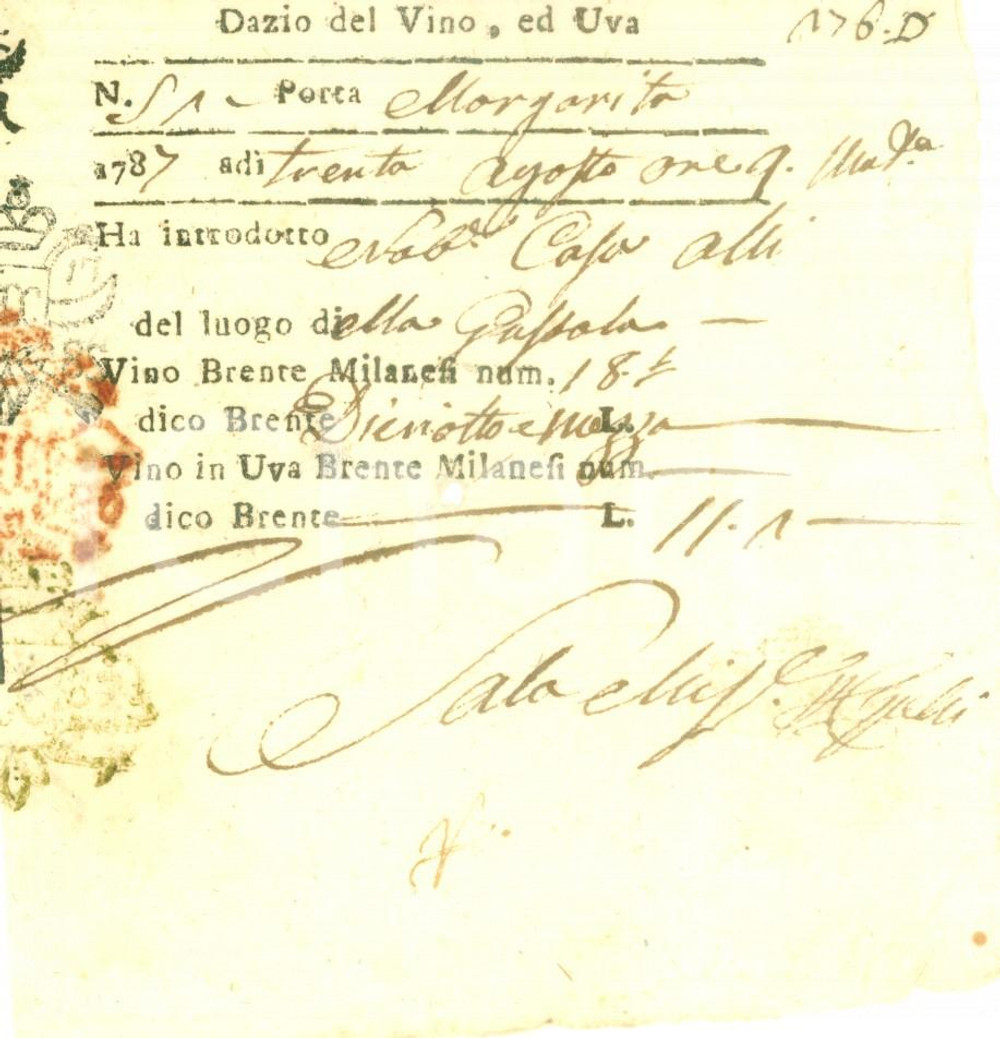 Dazio del Vino, ed Uva 176. D
N. 51 Porta Margarita
1787 adì trenta agosto ore 9.
Ha introdotto Casa alli
del luogo di ella
Vino Brente Milanesi num. 18.
dico Brente Dieciotto e mezza L.
Vino in Uva Brente Milanesi num.
dico Brente L. 11. 1
Sala